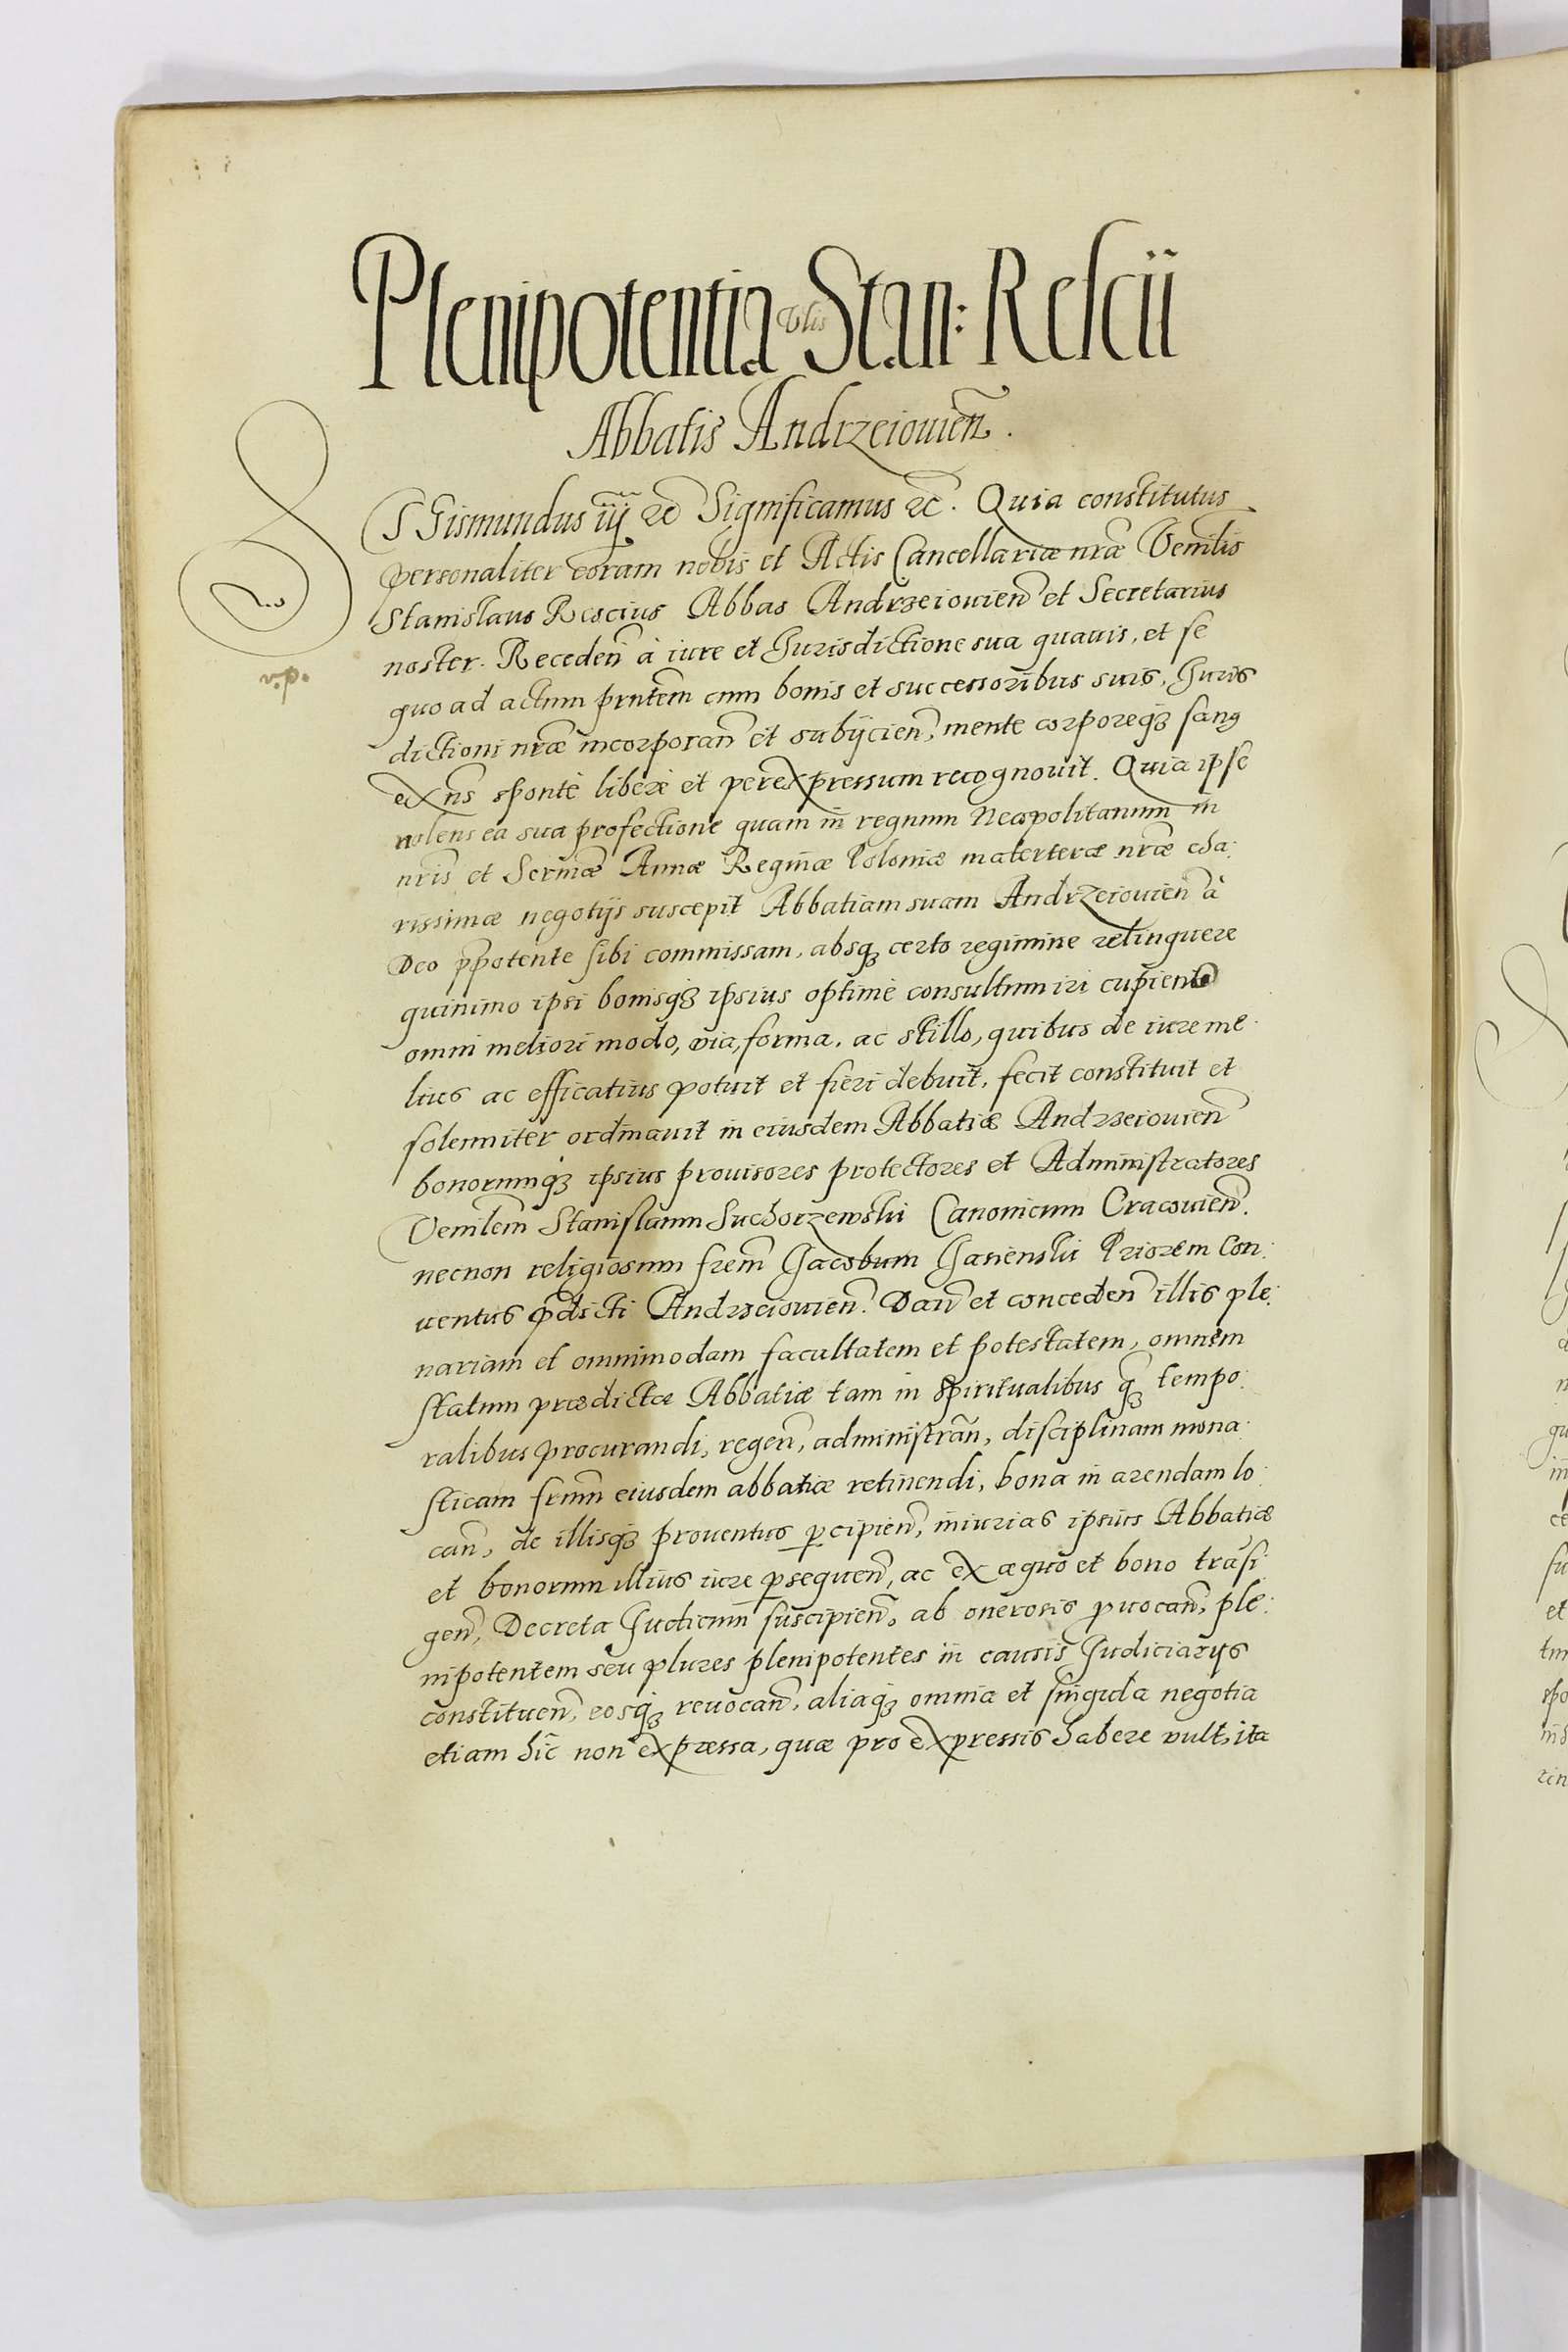 Plenipotentia Vlis Stan: Rescii
Abbatis Andrzeiouien̄.
SGismundus iiij ec̄ Significamus ec̄. Quia constitutus
personaliter coram nobis et Actis Cancellariæ nr̄æ Venn̄lis
Stanislaus Rescius Abbas Andrzeiouien̄ et Secretarius
noster. Receden̄ à iure et Jurisdictione sua quauis, et se
v.p.
quo ad actum pn̄tem cum bonis et successoribus suis, Juris
dictioni nr̄æ incorporan̄ et subijcien̄, mente corporeq; sanus
exn̄s spontè liberè et per expressum recognouit. Quia ipse
nolens ea sua profectione quam in regnum Neapolitanum in
nr̄is et Sermǣ Annæ Reginæ Poloniæ materteræ nr̄æ cha:
rissimæ negotijs suscepit Abbatiam suam Andrzeiouien̄ à
Deo p̄potente sibi commissam, absq; certo regimine relinquere
quinimo ipsi bonisq; ipsius optimè consultum iri cupiens
omni meliori modo, via, forma, ac stillo, quibus de iure me:
lius ac efficatius potuit et fieri debuit, fecit constituit et
solenniter ordinauit in eiusdem Abbatiæ Andrzeiouien̄
bonorumq; ipsius prouisores protectores et Administratores
Venn̄lem Stanislaum Suchorzewski Canonicum Cracouien̄.
necnon religiosum frem̄ Jacobum Jasienski Priorem Con:
uentus p̄dicti Andrzeiouien̄. Dan̄ et conceden̄ illis ple:
nariam et omnimodam facultatem et potestatem, omnem
statum prædictæ Abbatiæ tam in spiritualibus q̄ tempo:
ralibus procurandi, regen̄, administran̄, disciplinam mona:
sticam frum̄ eiusdem abbatiæ retinendi, bona in arendam lo:
can̄, de illisq; prouentus percipien̄, iniurias ipsius Abbatiæ
et bonorum illius iure persequen̄, ac ex æquo et bono trāsi:
gen̄, Decreta Judicum suscipien̄, ab onerosis prouocan̄, ple:
nipotentem seu plures plenipotentes in causis Judiciarijs
constituen̄, eosq; reuocan̄, aliaq; omnia et singula negotia
etiam hic non expressa, quæ pro expressis habere vult, ita